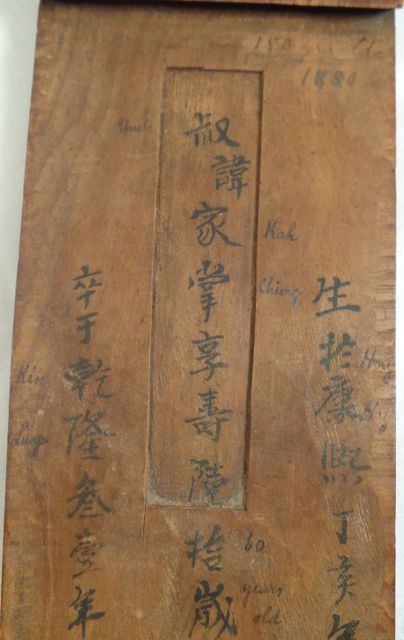 1880
生於康熙丁亥年
叔諱家掌享壽陸拾歲
卒于乾隆叁壹年
Uncle
Kah
Chiong
Kin
Lung
60
years
old